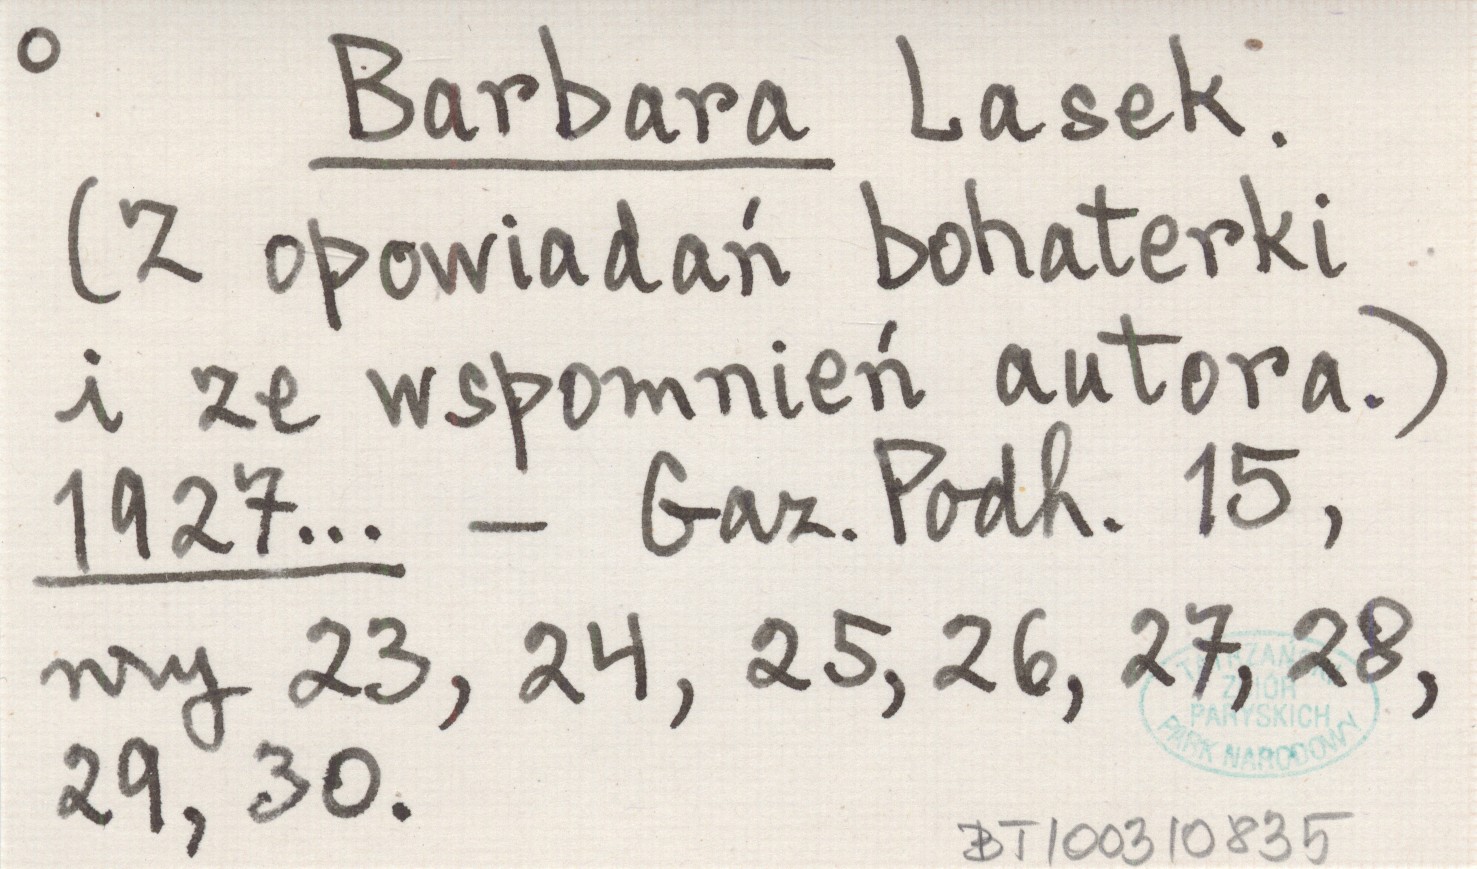 o
Barbara Lasek.
(Z opowiadań bohaterki
i ze wspomnień autora.)
1927... – Gaz. Podh. 15,
nry 23, 24, 25, 26, 27, 28,
29, 30.
TATRZAŃSKI
ZBIÓR
PARYSKICH
PARK NARODOWY
BT100310835